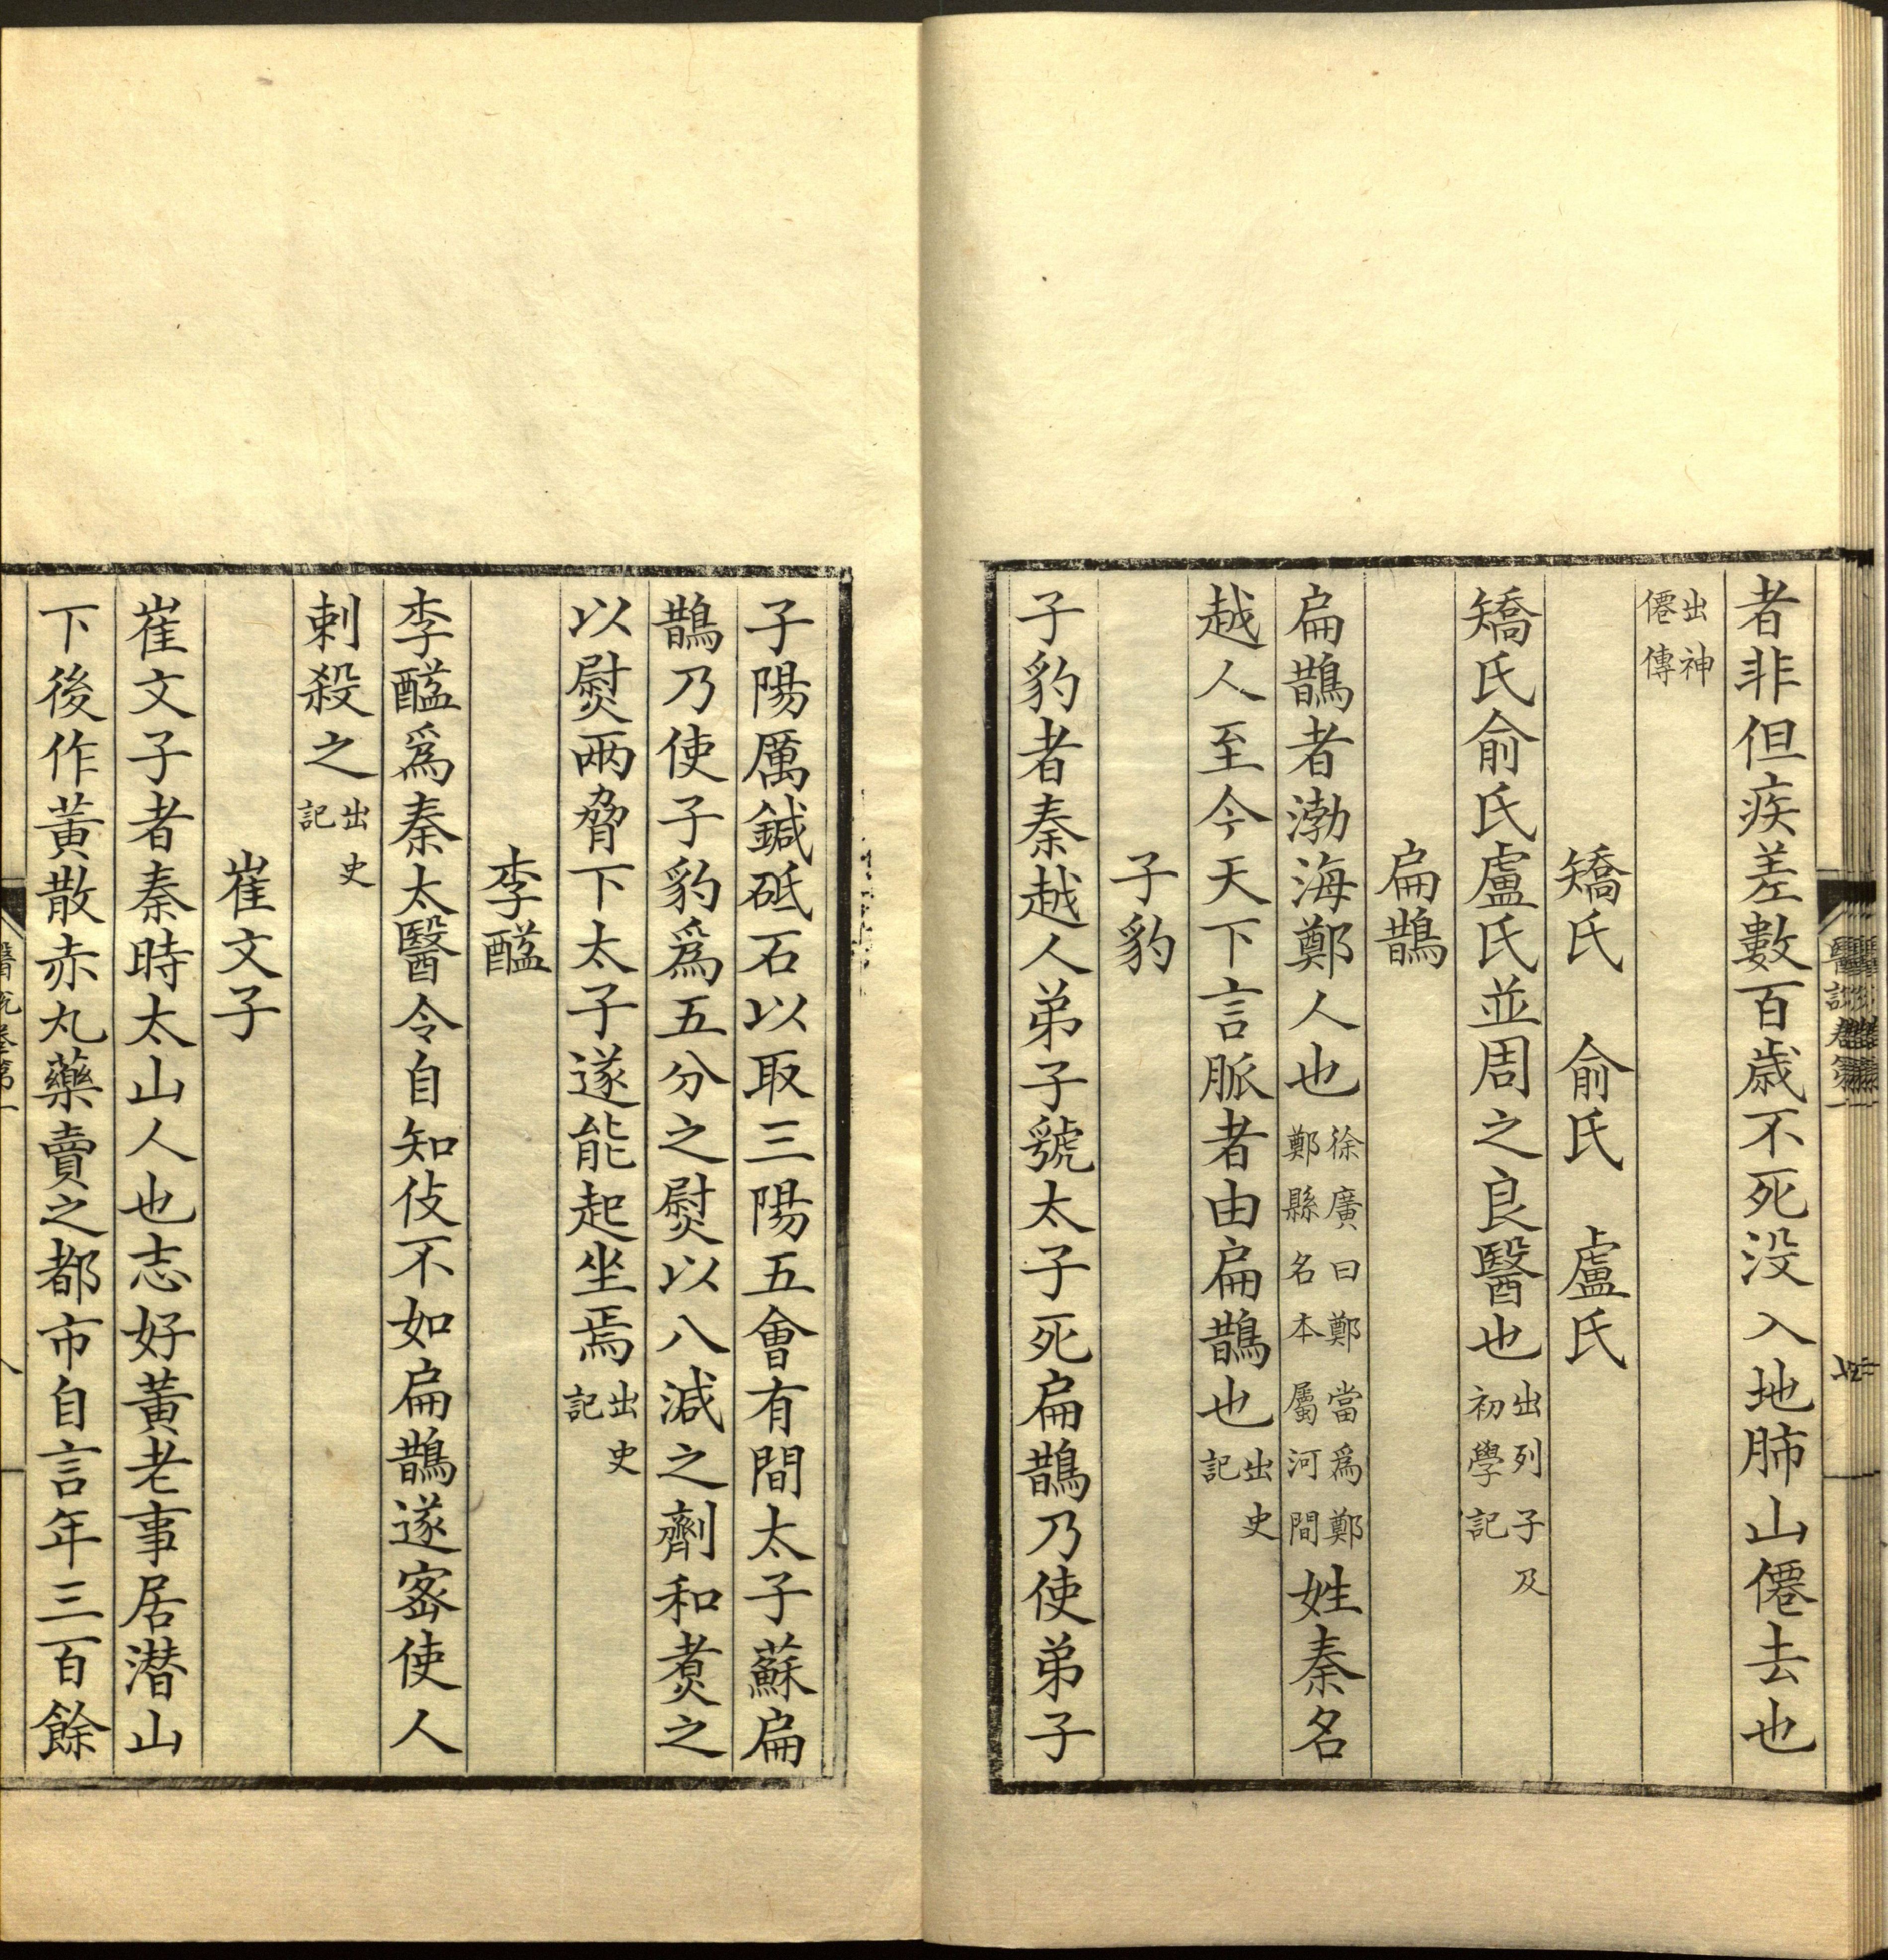 者非但疾差數百歳不死没入地肺山僊去也
出神
僊傳
矯氏　俞氏　盧氏
矯氏俞氏盧氏並周之良醫也出列子及
初學記
扁鵲
扁鵲者渤海鄭人也徐廣曰鄭當爲鄭
鄭縣名本屬河間
姓秦名
越人至今天下言脈者由扁鵲也出史
記
子豹
子豹者秦越人弟子號太子死扁鵲乃使弟子
子陽厲鍼砥石以取三陽五會有間太子蘇扁
鵲乃使子豹爲五分之熨以八減之劑和煑之
以熨兩脅下太子遂能起坐焉出史
記
李醯
李醯爲秦太醫令自知伎不如扁鵲遂宻使人
刺殺之出史
記
崔文子
崔文子者秦時太山人也志好黃老事居潜山
下後作黃散赤丸藥賣之都市自言年三百餘